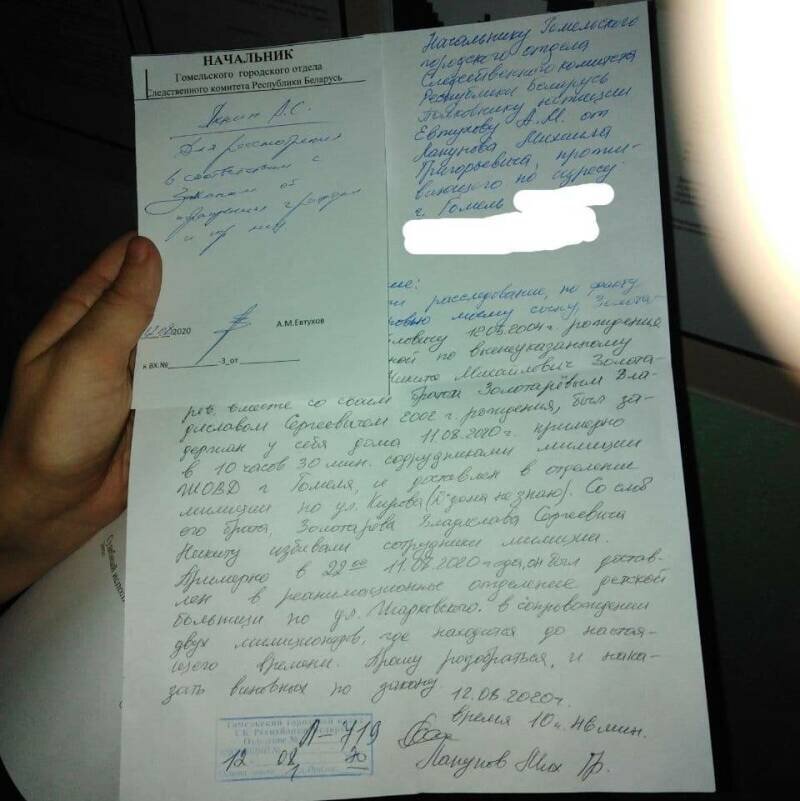 НАЧАЛЬНИК
Гомельского городского отдела
Следственного комитета Республики Беларусь
А.С.
Для рассмотрения
в соответствии с
Законом об
обращениях граждан
12.08.2020
А.М.Евтухов
к вх.№ -3_от
Начальнику Гомельского
городского отдела
Следственного комитета
Республики Беларусь
Полковнику юстиции
Евтухову А.М. от
Лапунова Михаила
Григорьевича, прожи-
вающего по адресу
г. Гомель
расследование, по факту
моему сыну, Золота-
12.03.2004г. рождения
ной по вышеуказанному
Никита Михайлович Золота-
рёв, вместе со своим братом Золотарёвым Вла-
диславом Сергеевичем 2002 г. рождения, был за-
держан у себя дома 11.08.2020г. примерно
в 10 часов 30 мин. сотрудниками милиции
ЖОВД г Гомеля, и доставлен в отделение
милиции по ул. Кирова (№ дома не знаю). Со слов
его брата, Золотарёва Владислава Сергеевича
Никиту избивали сотрудники милиции.
Примерно в 22 00 11.08.2020 года, он был достав-
лен в реанимационное отделение детской
больницы по ул. Жарковского. в сопровождении
двух милиционеров, где находится до настоя-
щего времени. Прошу разобраться, и нака-
зать виновных по закону.
12.08.2020г.
время 10 ч. 46 мин.
Лапунов Мих Гр.
Гомельский городской
Л-719
12 08